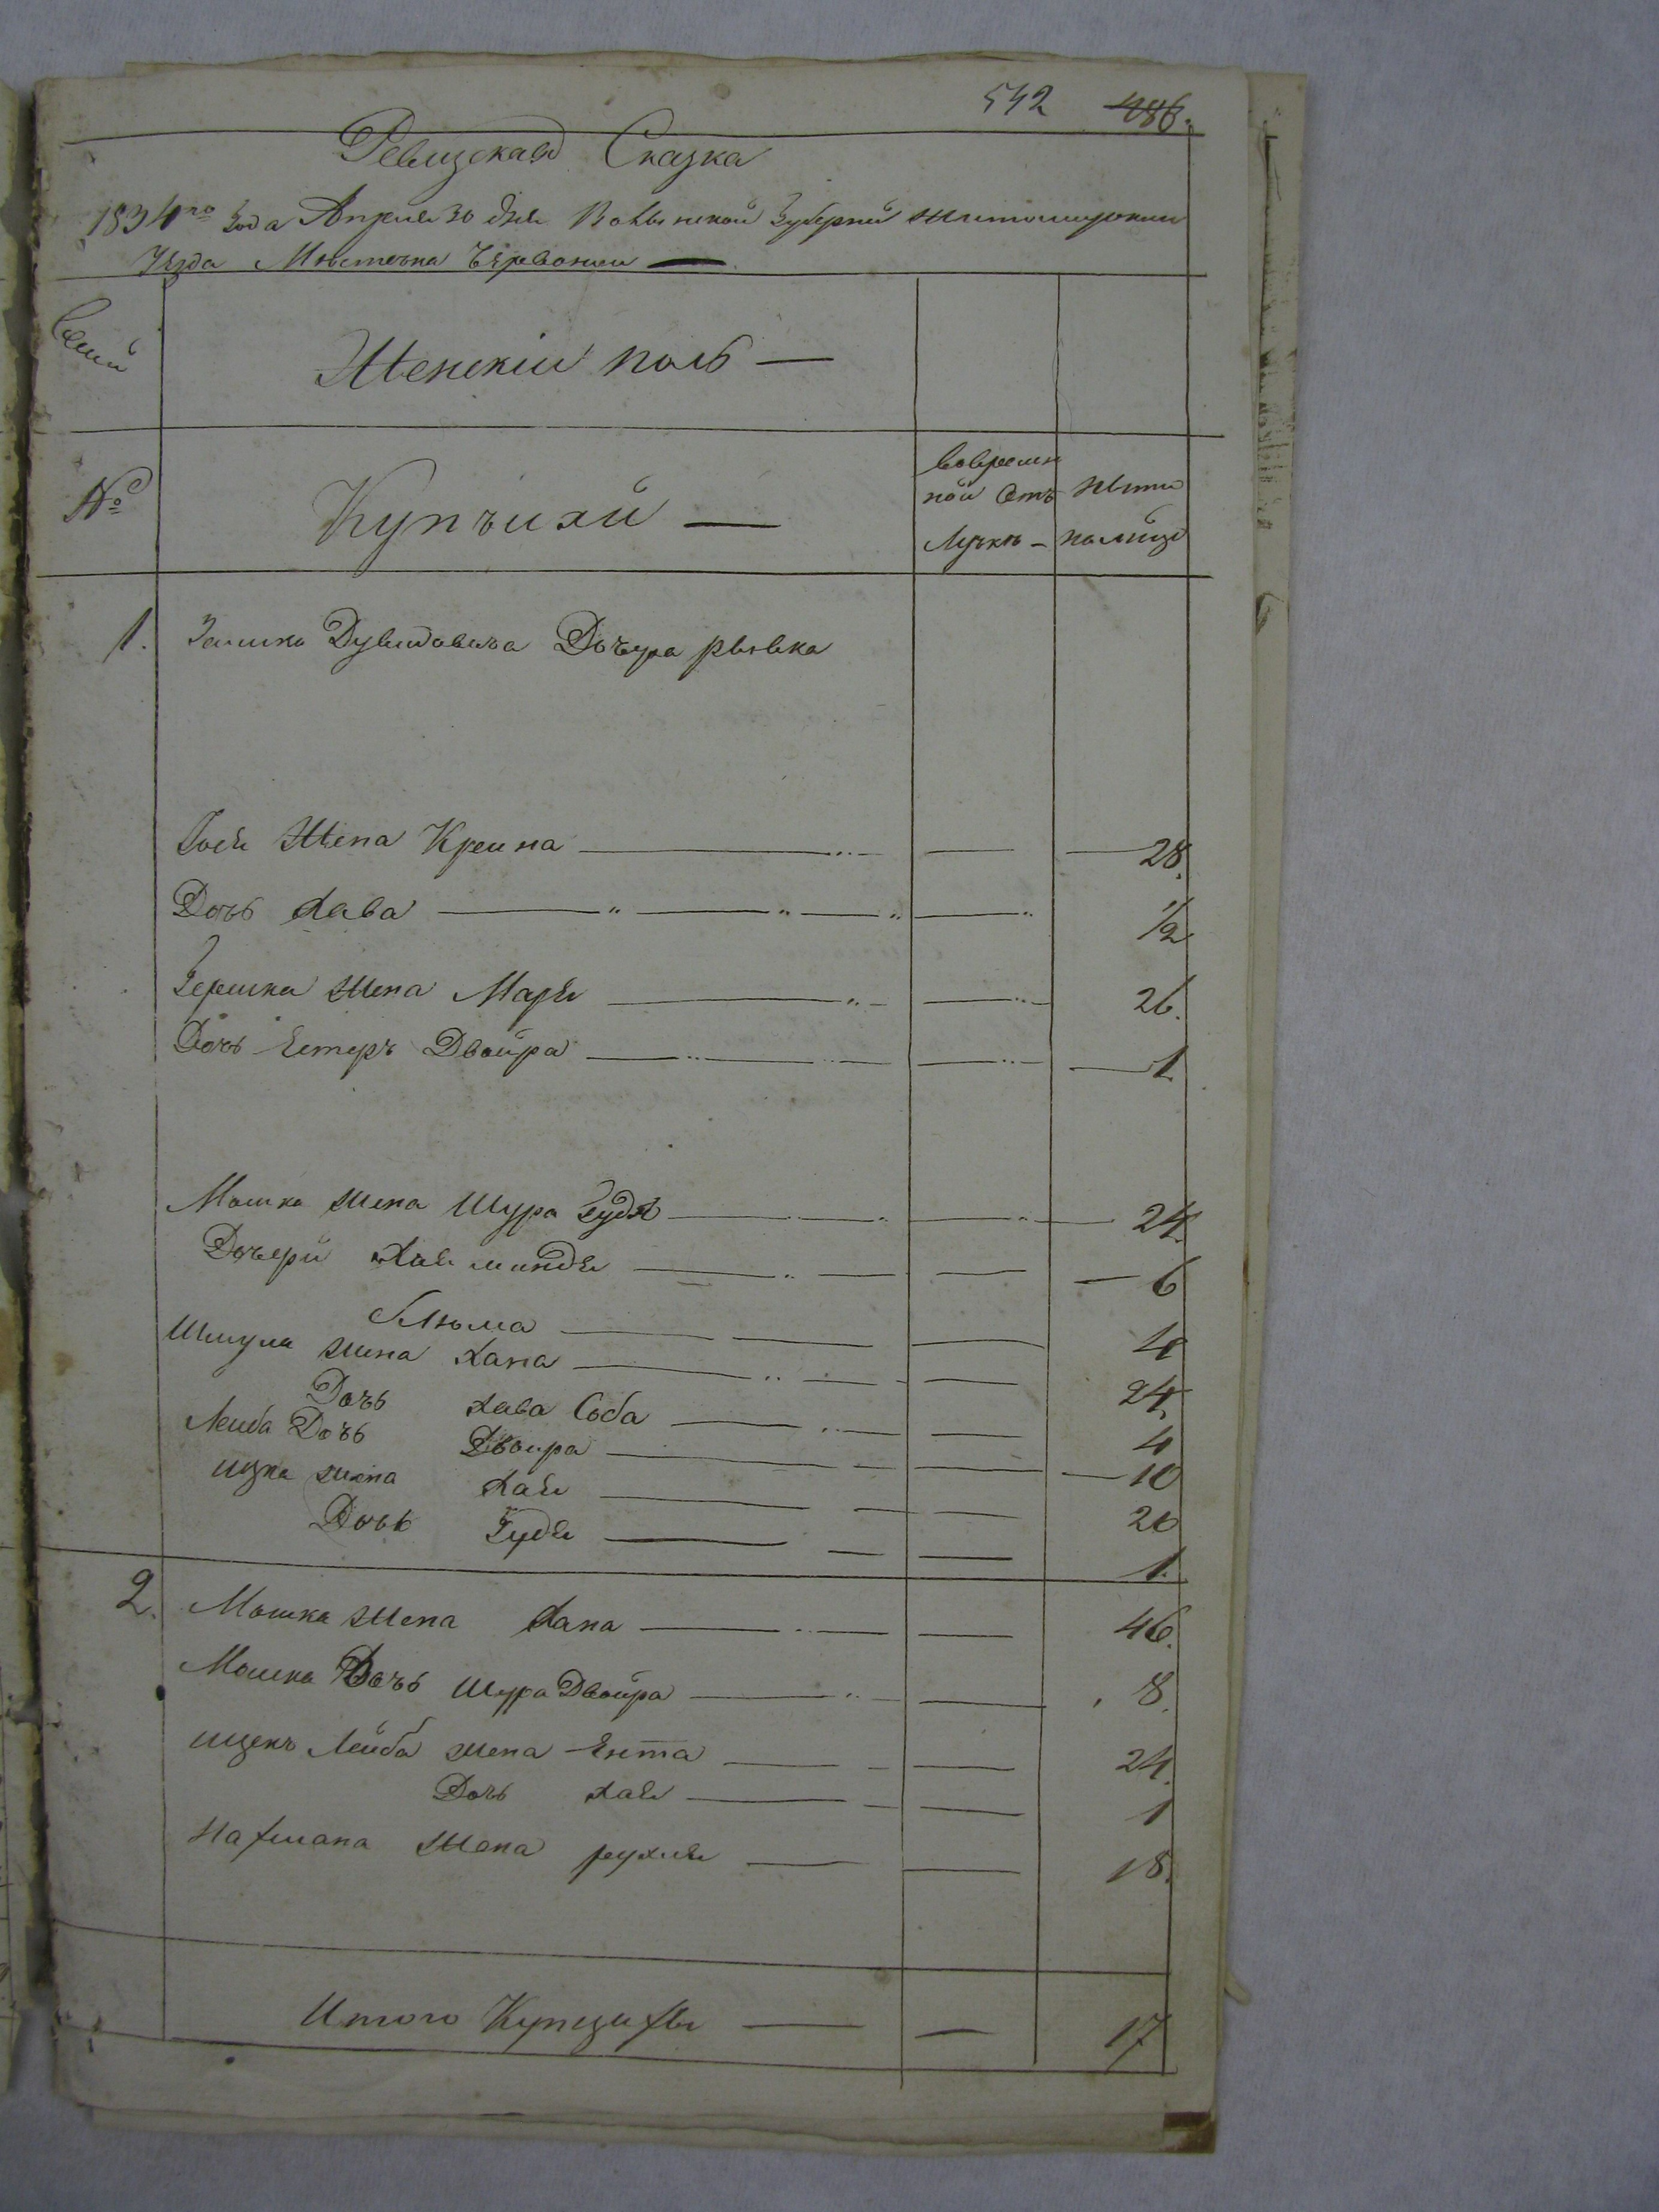 542 486.
Ревизская Сказка
1834го Года Апреля 30 дня Волынской Губерний Житомирскаи
Уезда Мѣстечка Черваний —
Семи
Женскіи полъ —
№
Купчихй —
вовремен
ной Отъ
Лучкѣ —
Ныти
налицо
1. Залика Дувидовича Дочура рывка
Йося Жена Креина — 28.
Дочь Хава — " — " — " — " 1/2
Гершка жена Марья — " — 26.
Дочь Естеръ Двоира — 1
Мошка жена Шура Гудя — 24.
Дочери Хая миндя — 6
Блюма — 4
Шмуля жена Хана — 24
Дочь Хава Соба — 4
Леиба Дочь Двоира — 10
ицка жена Хая — 20
Дочь Гудя — 1.
2. Мошка Жена Хана — 46.
Мошка Дочь Шура Двоира — 8.
ицекъ Леиба жена Ента — 24.
Дочь Хая — 1
Нахмана Жена рухля — 18.
Итого Купцихъ — 17